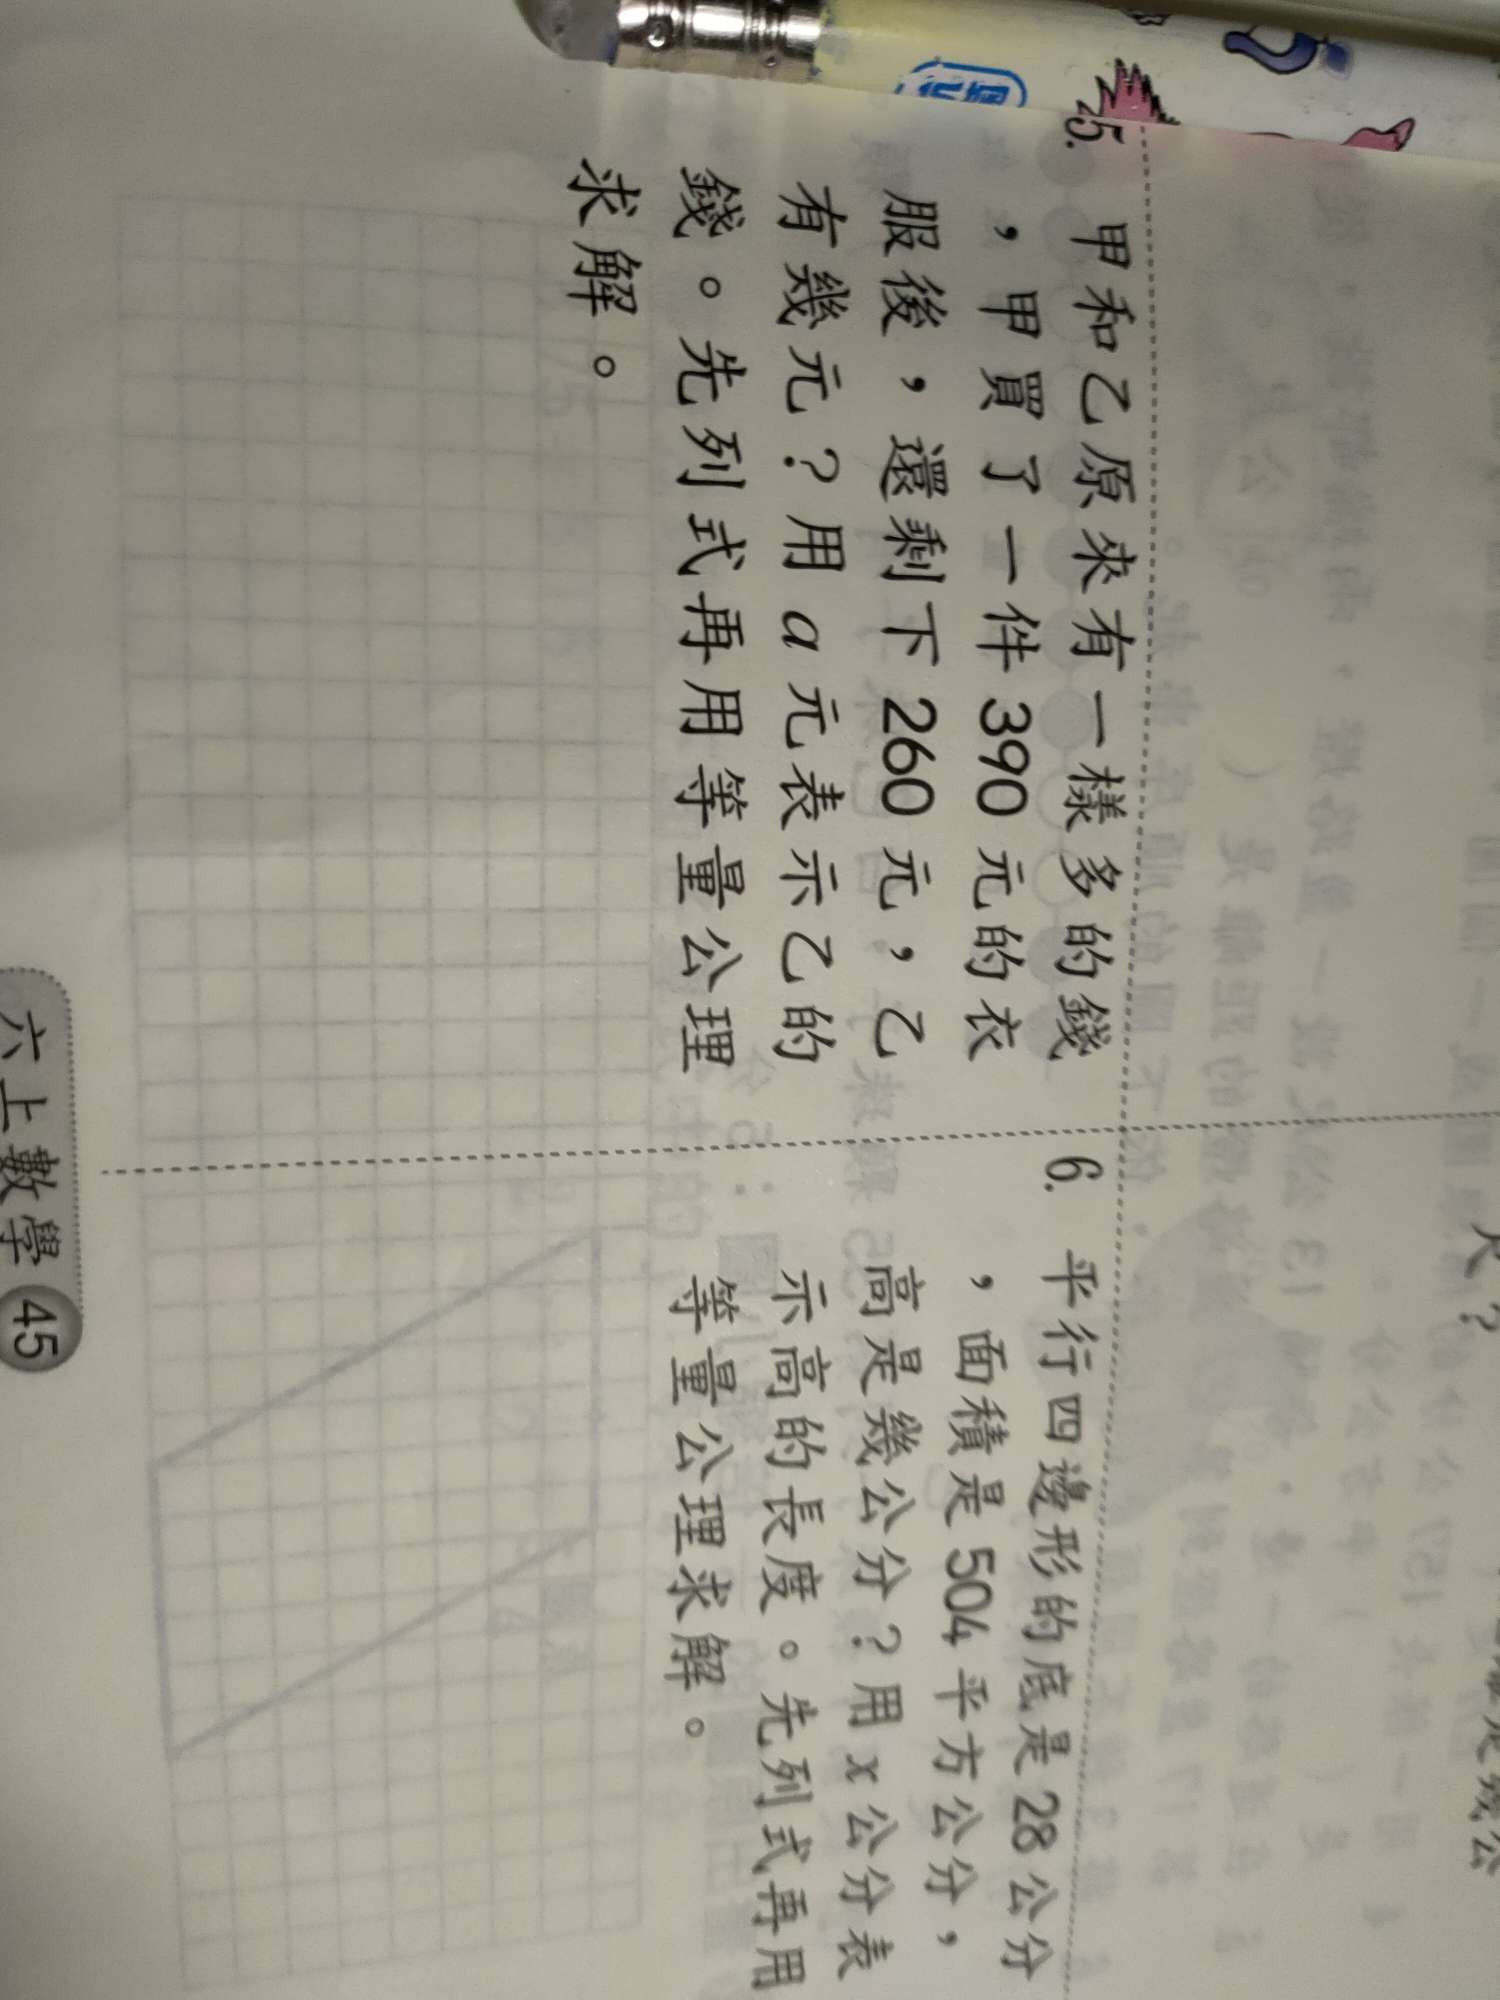 5. 甲和乙原來有一樣多的錢
，甲買了一件 390 元的衣
服後，還剩下 260 元，乙
有幾元？用 a 元表示乙的
錢。先列式再用等量公理
求解。
6. 平行四邊形的底是 28 公分
，面積是 504 平方公分，
高是幾公分？用 x 公分表
示高的長度。先列式再用
等量公理求解。
六上數學 45